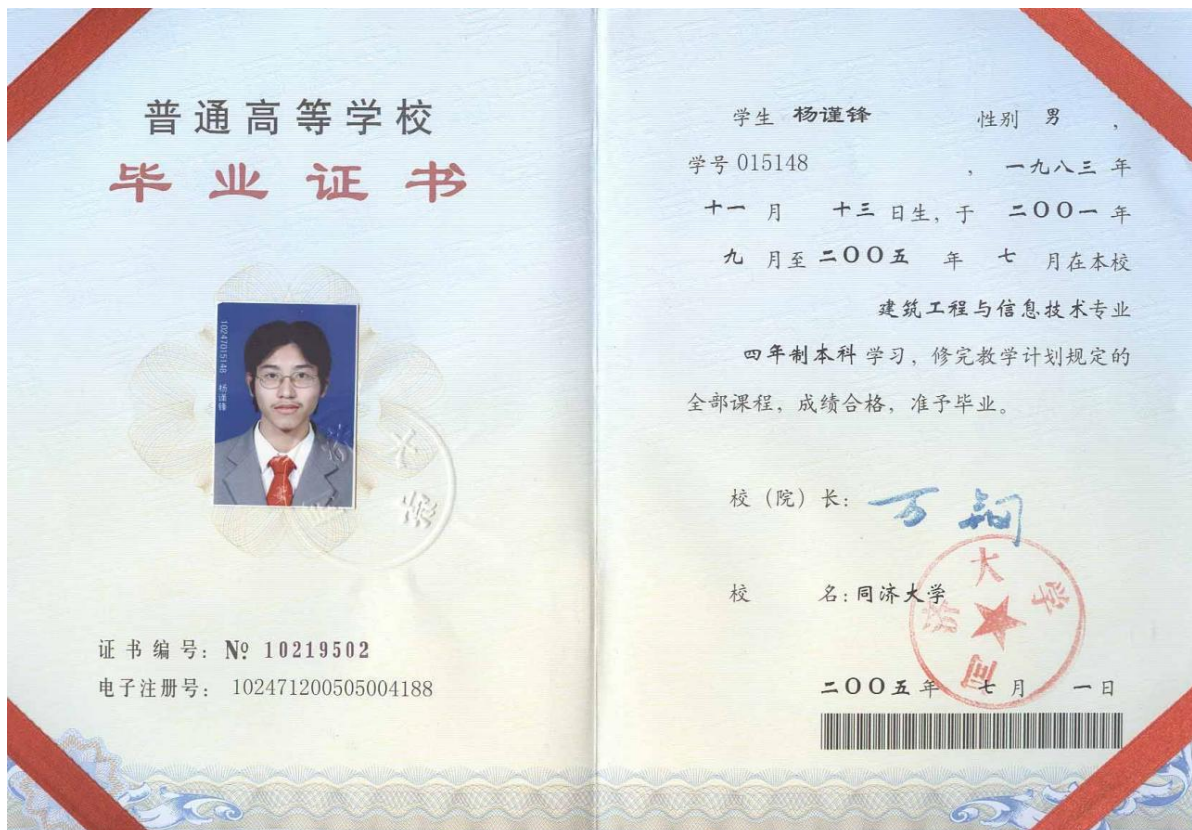 普通高等学校
毕业证书
10247015148 杨谨锋
证书编号: № 10219502
电子注册号: 102471200505004188
学生 杨谨锋 性别 男 ,
学号 015148 , 一九八三 年
十一 月 十三 日生, 于 二〇〇一 年
九 月至 二〇〇五 年 七 月在本校
建筑工程与信息技术专业
四年制本科 学习, 修完教学计划规定的
全部课程, 成绩合格, 准予毕业。
校（院）长: 万钢
校 名: 同济大学
同济大学
二〇〇五 年 七 月 一 日